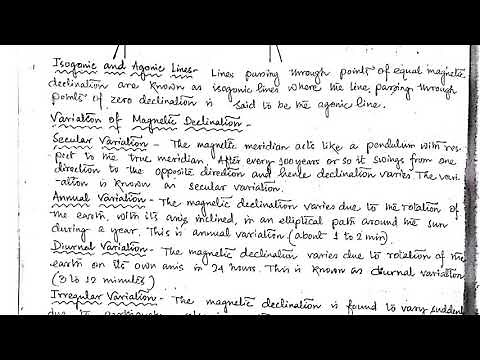 Isogonic and Agonic Lines- Lines passing through points of equal magnetic
declination are known as isogonic lines where the line, passing through
points of zero declination is said to be the agonic line.
Variation of Magnetic Declination-
Secular Variation - The magnetic meridian acts like a pendulum with res-
pect to the true meridian. After every 300 years or so it swings from one
direction to the opposite direction and hence declination varies. The vari-
ation is known as secular variation.
Annual Variation - The magnetic declination varies due to the rotation of
the earth, with its axis inclined, in an elliptical path around the sun
during a year. This is annual variation (about 1 to 2 min)
Diurnal Variation - The magnetic declination varies due to rotation of the
earth on its own axis in 24 hours. This is known as diurnal variation
(3 to 12 minutes)
Irregular Variation - The magnetic declination is found to vary sudden